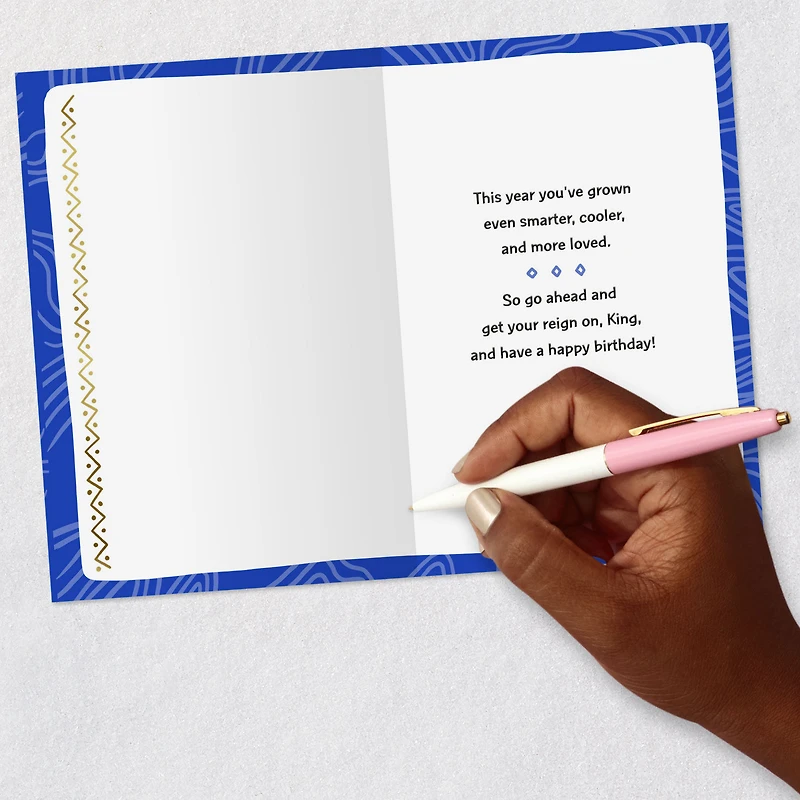 This year you've grown
even smarter, cooler,
and more loved.
So go ahead and
get your reign on, King,
and have a happy birthday!